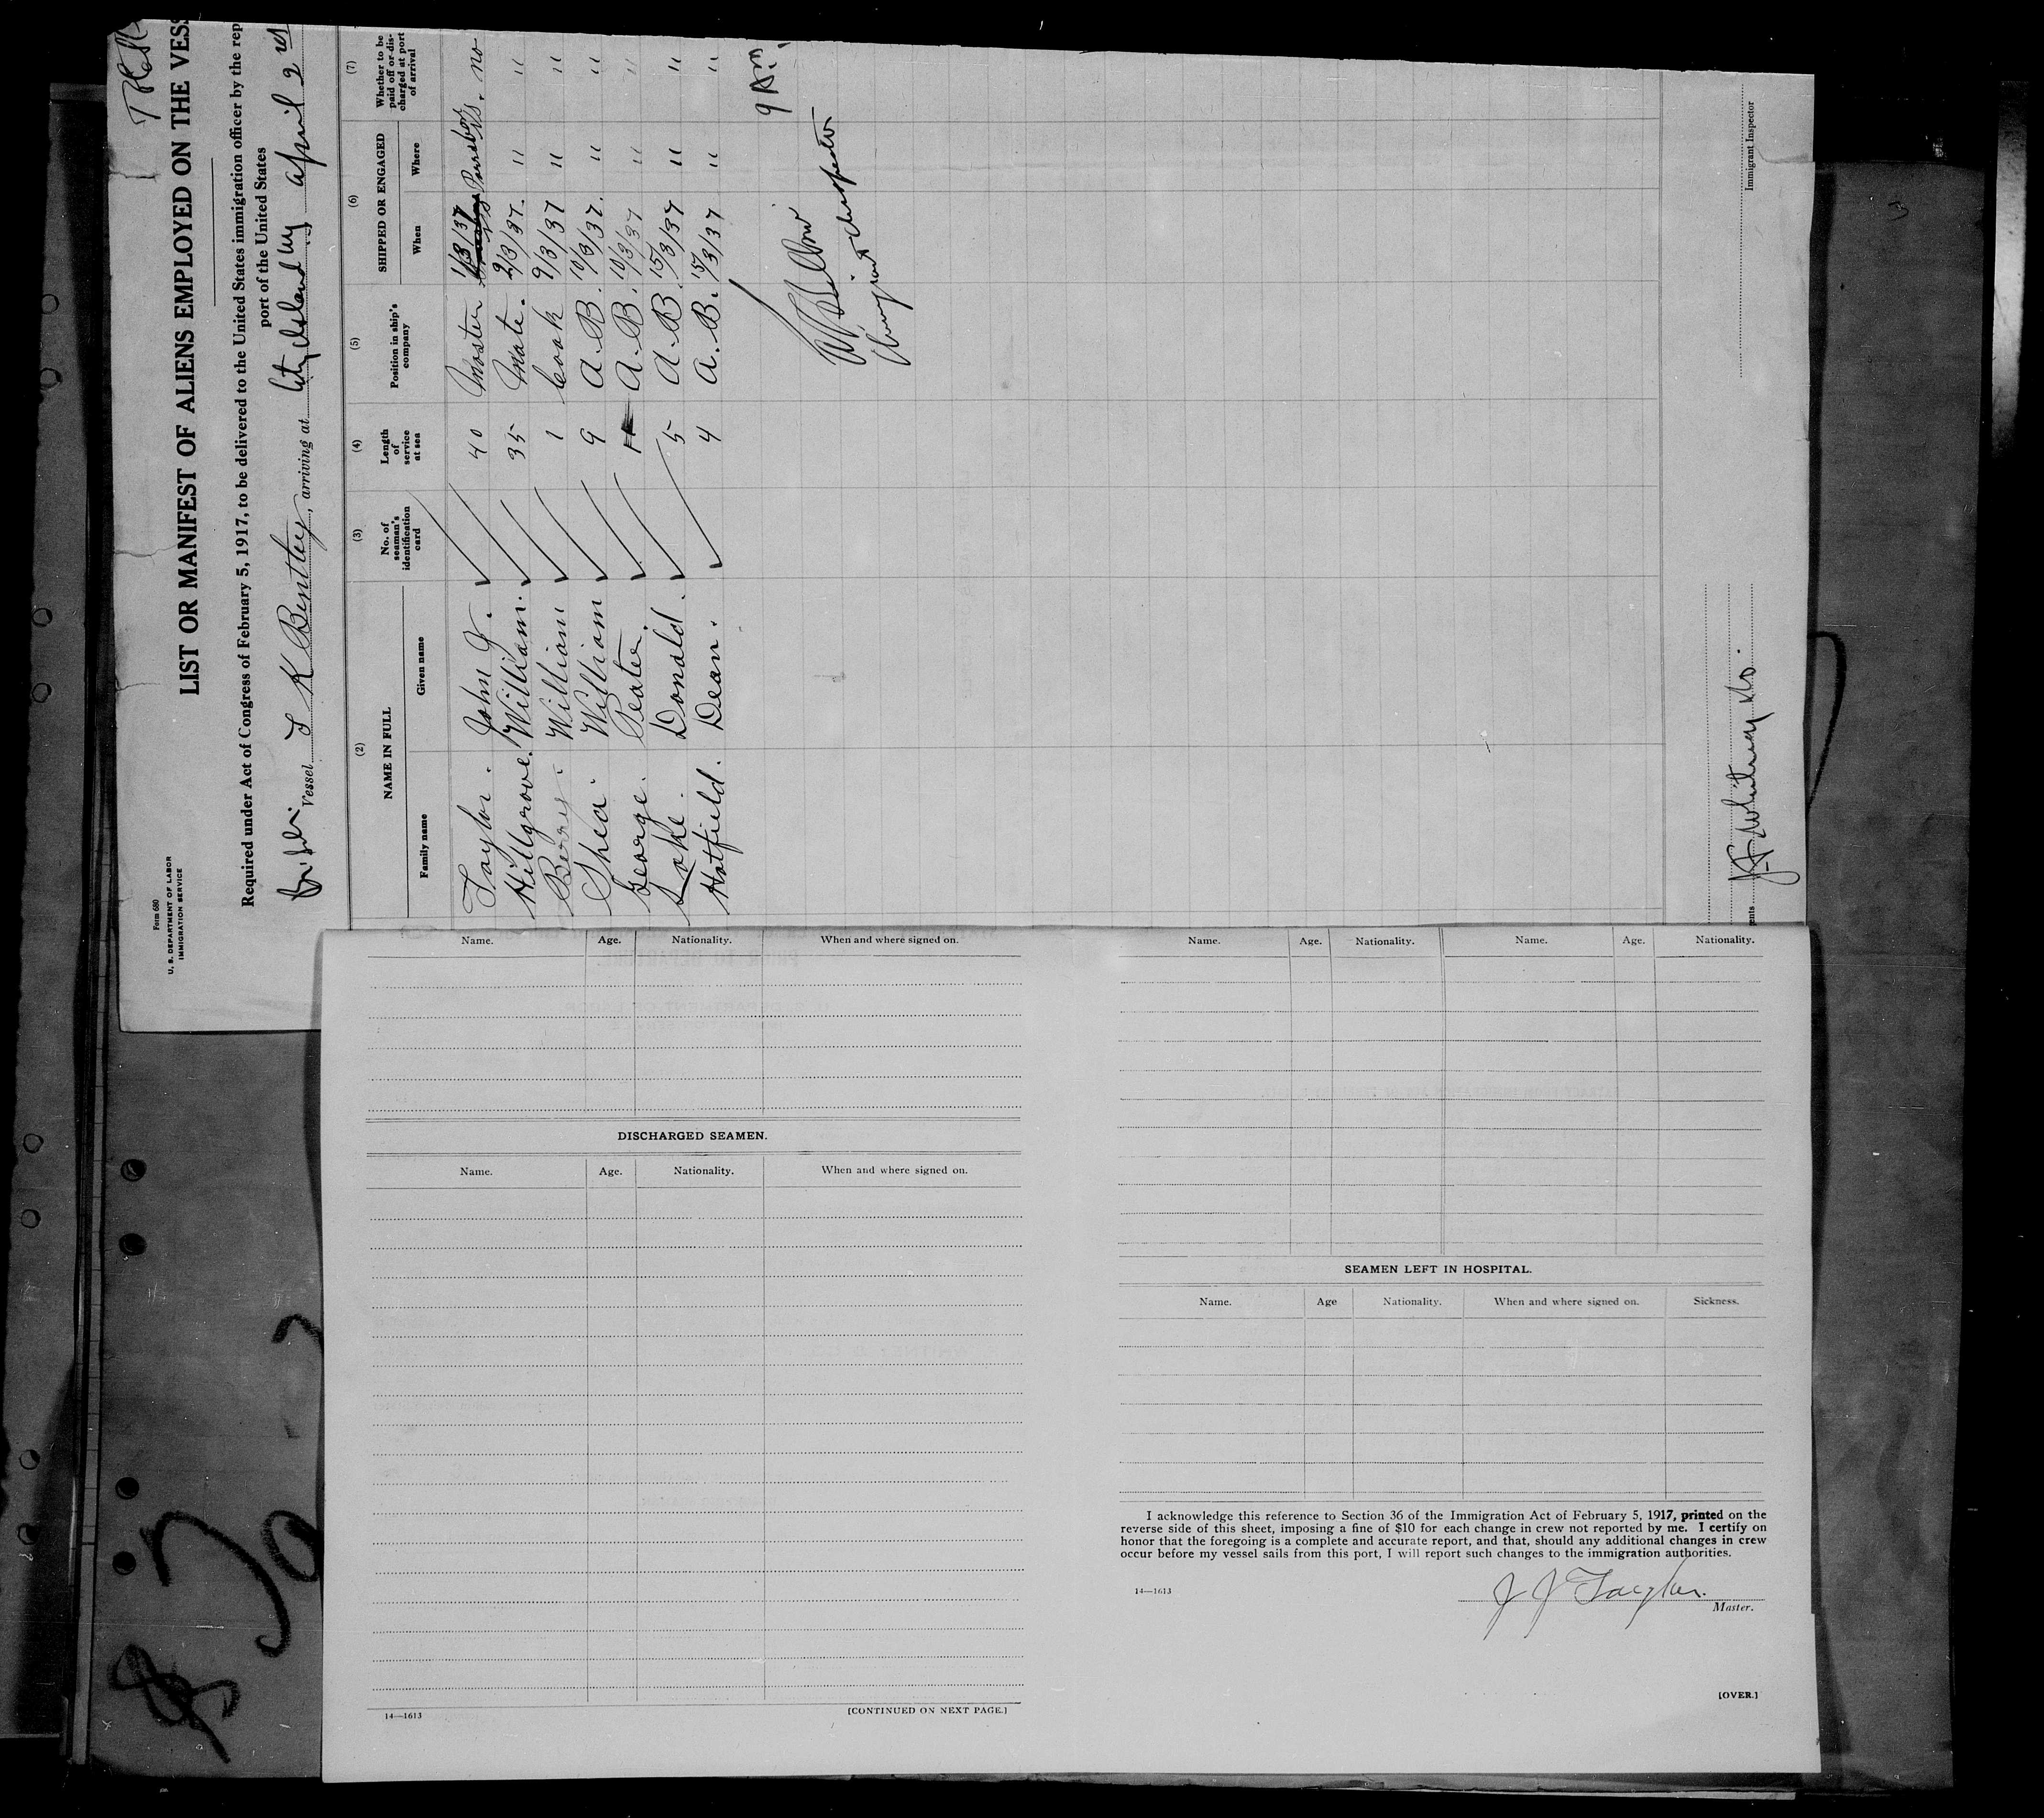 Form 680
U. S. DEPARTMENT OF LABOR
IMMIGRATION SERVICE
LIST OR MANIFEST OF ALIENS EMPLOYED ON THE VESS
Required under Act of Congress of February 5, 1917, to be delivered to the United States immigration officer by the rep
port of the United States
Vessel K Bentley, arriving at City Island Ny April 2
(2) (3) (4) (5) (6) (7)
NAME IN FULL No. of seaman's identification card Length of service at sea Position in ship's company SHIPPED OR ENGAGED Whether to be paid off or discharged at port of arrival
Family name Given name When Where
Taylor. John J. 40 Master 1/3/37 Parrsboro NS. no
Hillgrove. William. 35 Mate. 2/3/37. " "
Berry. William 1 Cook 9/3/37 " "
Shea. William 9 A.B. 10/3/37. " "
George. Peater. A.B. 10/3/37 " "
Lake. Donald. 5 A.B. 15/3/37 " "
Hatfield. Dean. 4 A.B. 15/3/37 " "
9 Am.
Immigrant Inspector
ents
Immigrant Inspector
Name. Age. Nationality. When and where signed on.
DISCHARGED SEAMEN.
Name. Age. Nationality. When and where signed on.
14—1613
[CONTINUED ON NEXT PAGE.]
Name. Age. Nationality. Name. Age. Nationality.
SEAMEN LEFT IN HOSPITAL.
Name. Age Nationality. When and where signed on. Sickness.
I acknowledge this reference to Section 36 of the Immigration Act of February 5, 1917, printed on the
reverse side of this sheet, imposing a fine of $10 for each change in crew not reported by me. I certify on
honor that the foregoing is a complete and accurate report, and that, should any additional changes in crew
occur before my vessel sails from this port, I will report such changes to the immigration authorities.
14—1613
J J Taylor.
Master.
[OVER.]